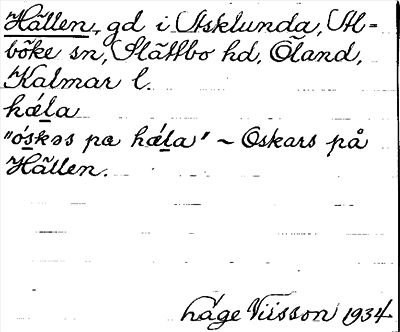 Hällen, gd i Asklunda, Al=
böke sn, Slättbo hd, Öland,
Kalmar l.
hǽla
"óskəs pɑ hǽla" ~ Oskars på
Hällen.
Låge Vii‌sson 1934